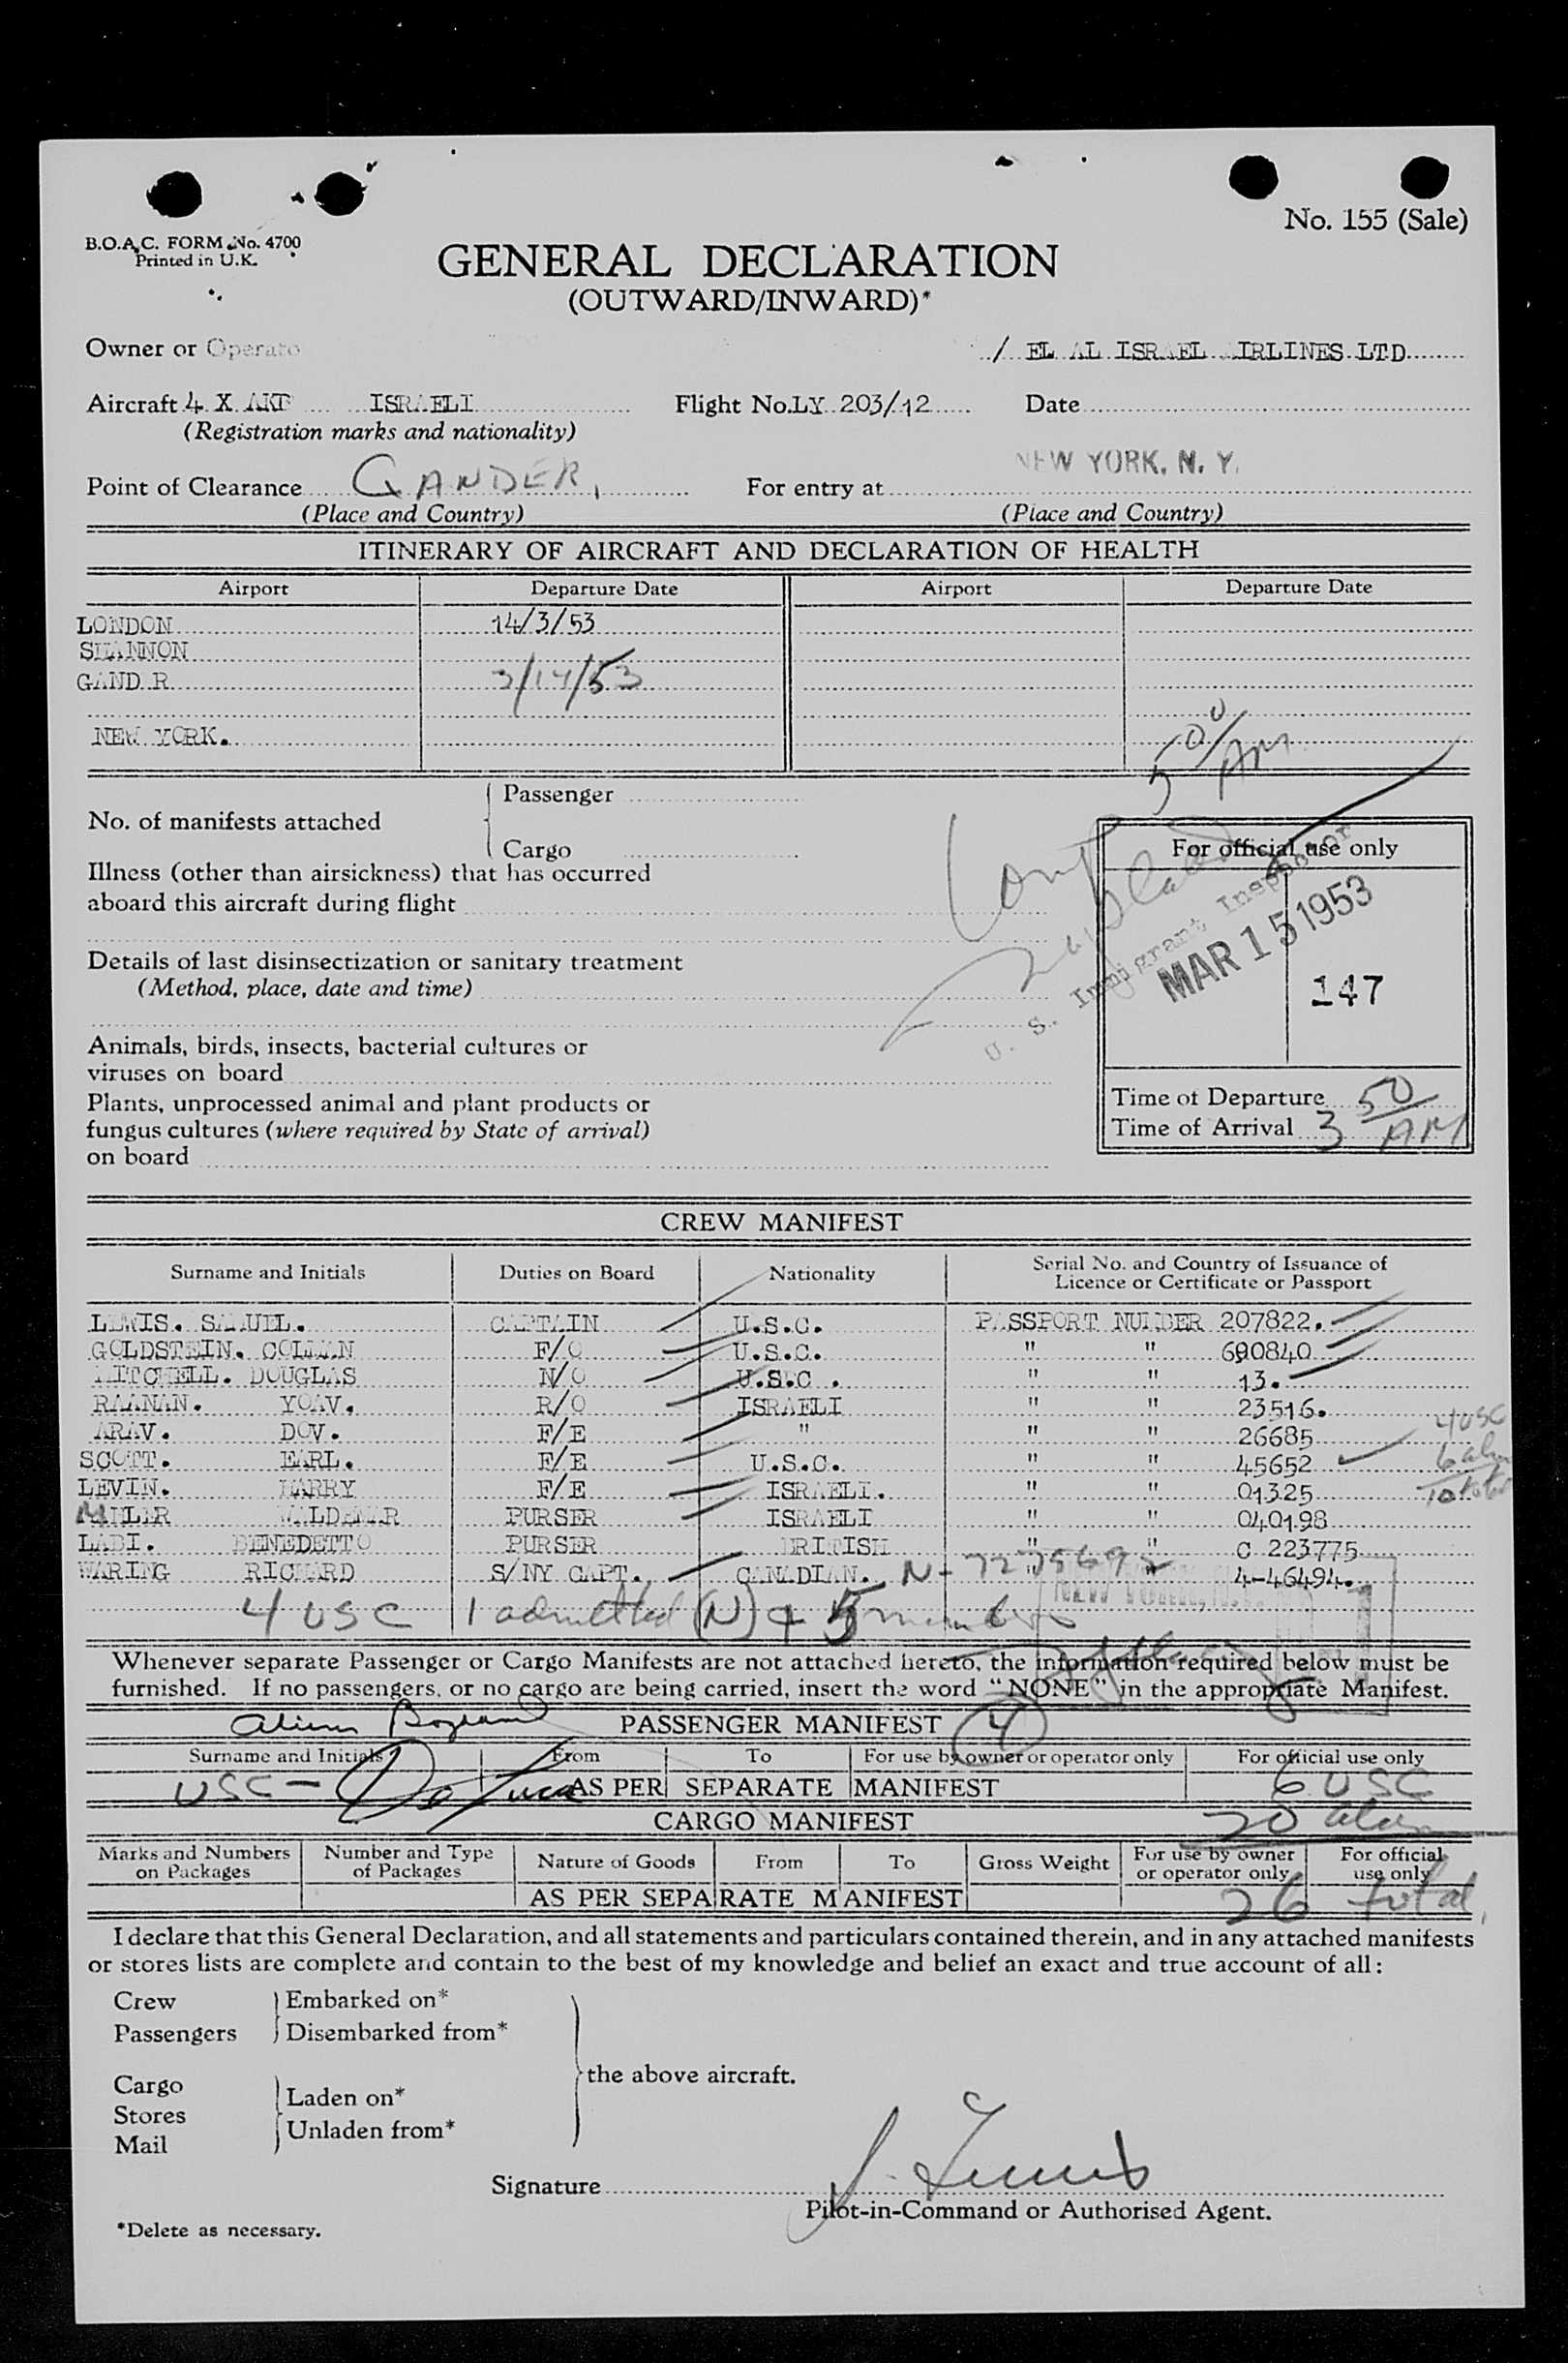 No. 155 (Sale)
B.O.A.C. FORM No. 4700
Printed in U.K.
GENERAL DECLARATION
(OUTWARD/INWARD)*
Owner or Operato / EL AL ISRAEL AIRLINES LTD
Aircraft 4 X ISRAELI Flight No. LY 203/12 Date
(Registration marks and nationality)
NEW YORK, N. Y.
Point of Clearance GANDER, For entry at
(Place and Country) (Place and Country)
ITINERARY OF AIRCRAFT AND DECLARATION OF HEALTH
Airport Departure Date Airport Departure Date
LONDON 14/3/53
SHANNON
GAND R 3/14/53
NEW YORK.
5 00/AM
No. of manifests attached { Passenger
Cargo
Illness (other than airsickness) that has occurred
aboard this aircraft during flight
Details of last disinsectization or sanitary treatment
(Method, place, date and time)
Animals, birds, insects, bacterial cultures or
viruses on board
Plants, unprocessed animal and plant products or
fungus cultures (where required by State of arrival)
on board
For official use only
U. S. Immigrant Inspector
MAR 15 1953
147
Time of Departure
Time of Arrival 3 50 AM
CREW MANIFEST
Surname and Initials Duties on Board Nationality Serial No. and Country of Issuance of
Licence or Certificate or Passport
LEWIS. SAMUEL. CAPTAIN U.S.C. PASSPORT NUMBER 207822.
GOLDSTEIN. COLMAN F/O U.S.C. " " 690840
MITCHELL. DOUGLAS N/O U.S.C . " " 13.
RAANAN. YOAV. R/O ISRAELI " " 23516.
ARAV. DOV. F/E " " " 26685
4 USC
SCOTT. EARL. F/E U.S.C. " " 45652
6 alien
LEVIN. HARRY F/E ISRAELI. " " 01325
10 total
MILLER WALDEMAR PURSER ISRAELI " " 040198
LABI. BENEDETTO PURSER BRITISH " " C 223775
WARING RICHARD S/NY CAPT. CANADIAN. N-7275692 " 4-46494.
4 USC 1 admitted (N) + 5
Whenever separate Passenger or Cargo Manifests are not attached hereto, the information required below must be
furnished. If no passengers, or no cargo are being carried, insert the word "NONE" in the appropriate Manifest.
PASSENGER MANIFEST 4
Surname and Initials From To For use by owner or operator only For official use only
USC - De Luca AS PER SEPARATE MANIFEST 6 USC
CARGO MANIFEST 20 alien
Marks and Numbers on Packages Number and Type of Packages Nature of Goods From To Gross Weight For use by owner or operator only For official use only
AS PER SEPARATE MANIFEST 26 total,
I declare that this General Declaration, and all statements and particulars contained therein, and in any attached manifests
or stores lists are complete and contain to the best of my knowledge and belief an exact and true account of all:
Crew Embarked on*
Passengers Disembarked from*
the above aircraft.
Cargo
Laden on*
Stores
Unladen from*
Mail
Signature S. Lewis
Pilot-in-Command or Authorised Agent.
*Delete as necessary.